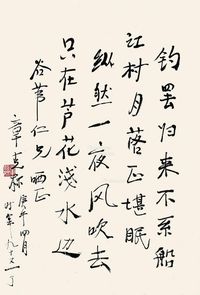 钓罢归来不系船
江村月落正堪眠
纵然一夜风吹去
只在芦花淺水边
谷苇仁兄 晒正
章克标 庚午四月
时年九十又一了